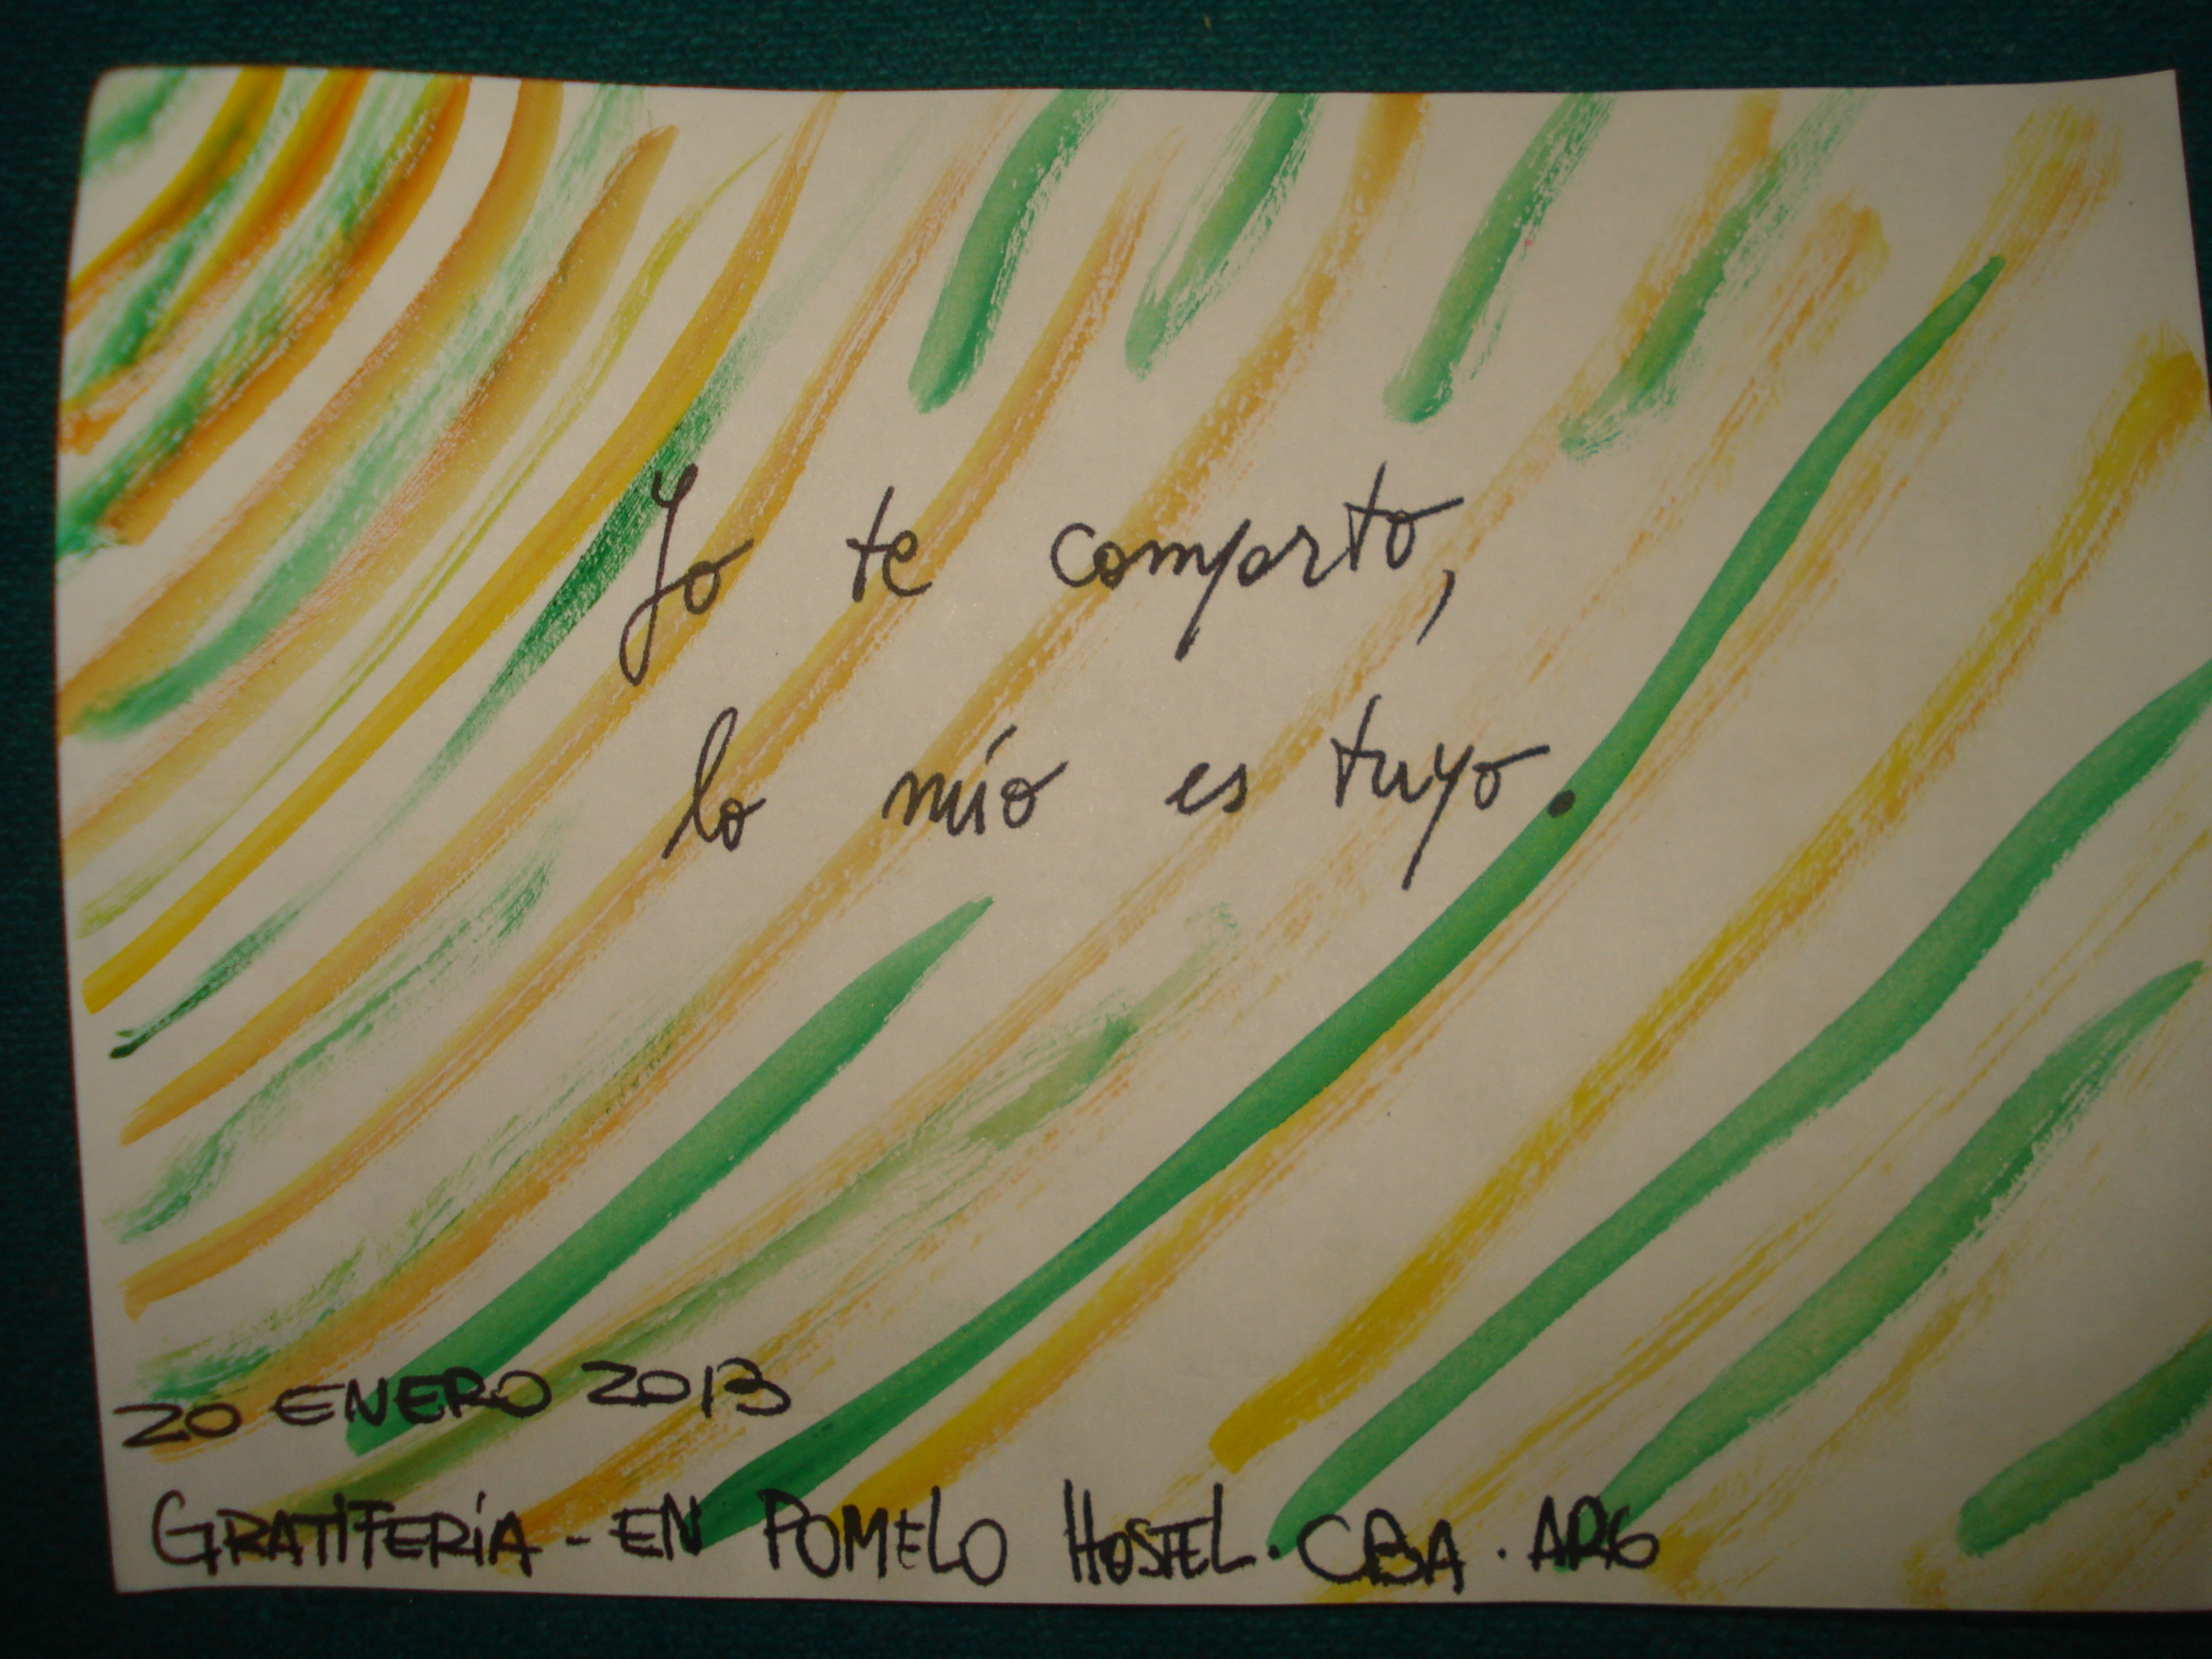 Yo te comparto,
lo mío es tuyo.
20 ENERO 2013
GRATIFERÍA - EN POMELO HOSTEL . CBA . ARG